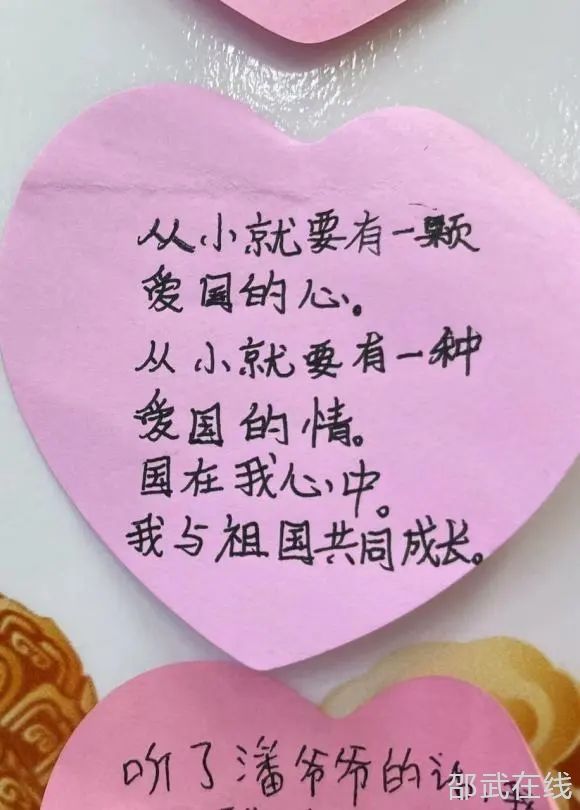 从小就要有一颗
爱国的心。
从小就要有一种
爱国的情。
国在我心中。
我与祖国共同成长。
听了潘爷爷的
邵武在线